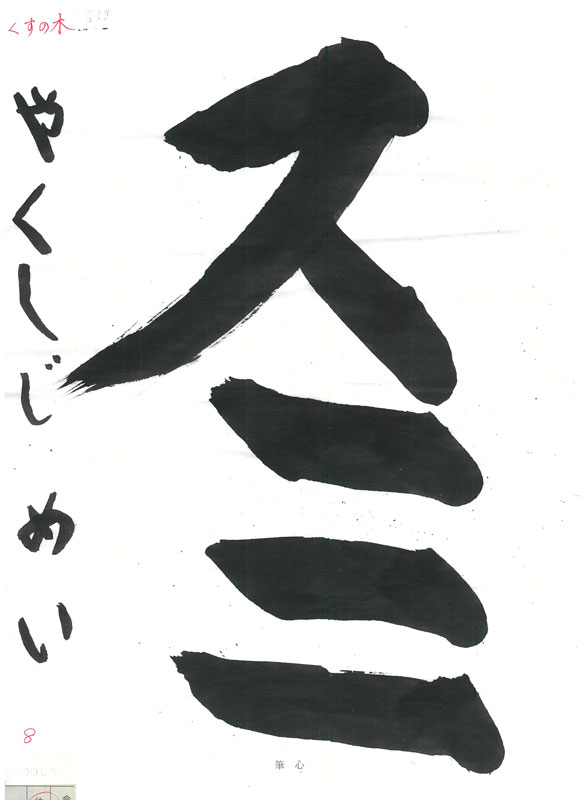 スミ
くすの木
やくしじ めい
8
筆心